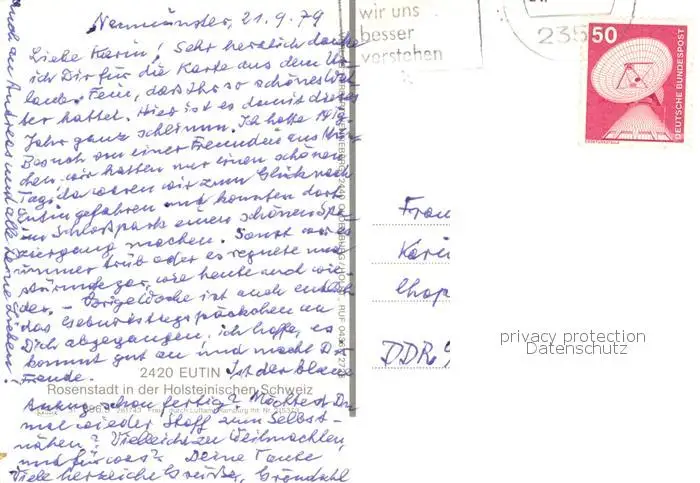 Neumünster, 21.9.79
Liebe Karin! Sehr herzlich danke
ich Dir für die Karte aus dem Ur-
laub. Fein, daß Ihr so schönes Wet-
ter hattet. Hier ist es damit dieses
Jahr ganz schlimm. Ich hatte 14 Tg.
Besuch von einer Freundin aus Mün-
chen - wir hatten nur einen schönen
Tag, da waren wir zum Glück nach
Eutin gefahren und konnten dort
im Schloßpark einen schönen Spa-
ziergang machen. Sonst war es
immer trüb oder es regnete und
stürmte gar, wie heute und wie-
der. - Vorige Woche ist auch endlich
das Geburtstagspäckchen an
Dich abgegangen, ich hoffe, es
kommt gut an und macht Dir
Freude. Ist der blaue
2420 EUTIN
Rosenstadt in der Holsteinischen Schweiz
Anzug schon fertig? Möchtest Du
mal wieder Stoff zum Selbst-
nähen? Vielleicht zu Weihnachten,
und für was? Deine Tante
Viele herzliche Grüße,
auch an Andreas und alle Deine Lieben!
wir uns
besser
verstehen
235
50
DEUTSCHE BUNDESPOST
Frau
Karin
Chop
DDR 9
privacy protection
Datenschutz